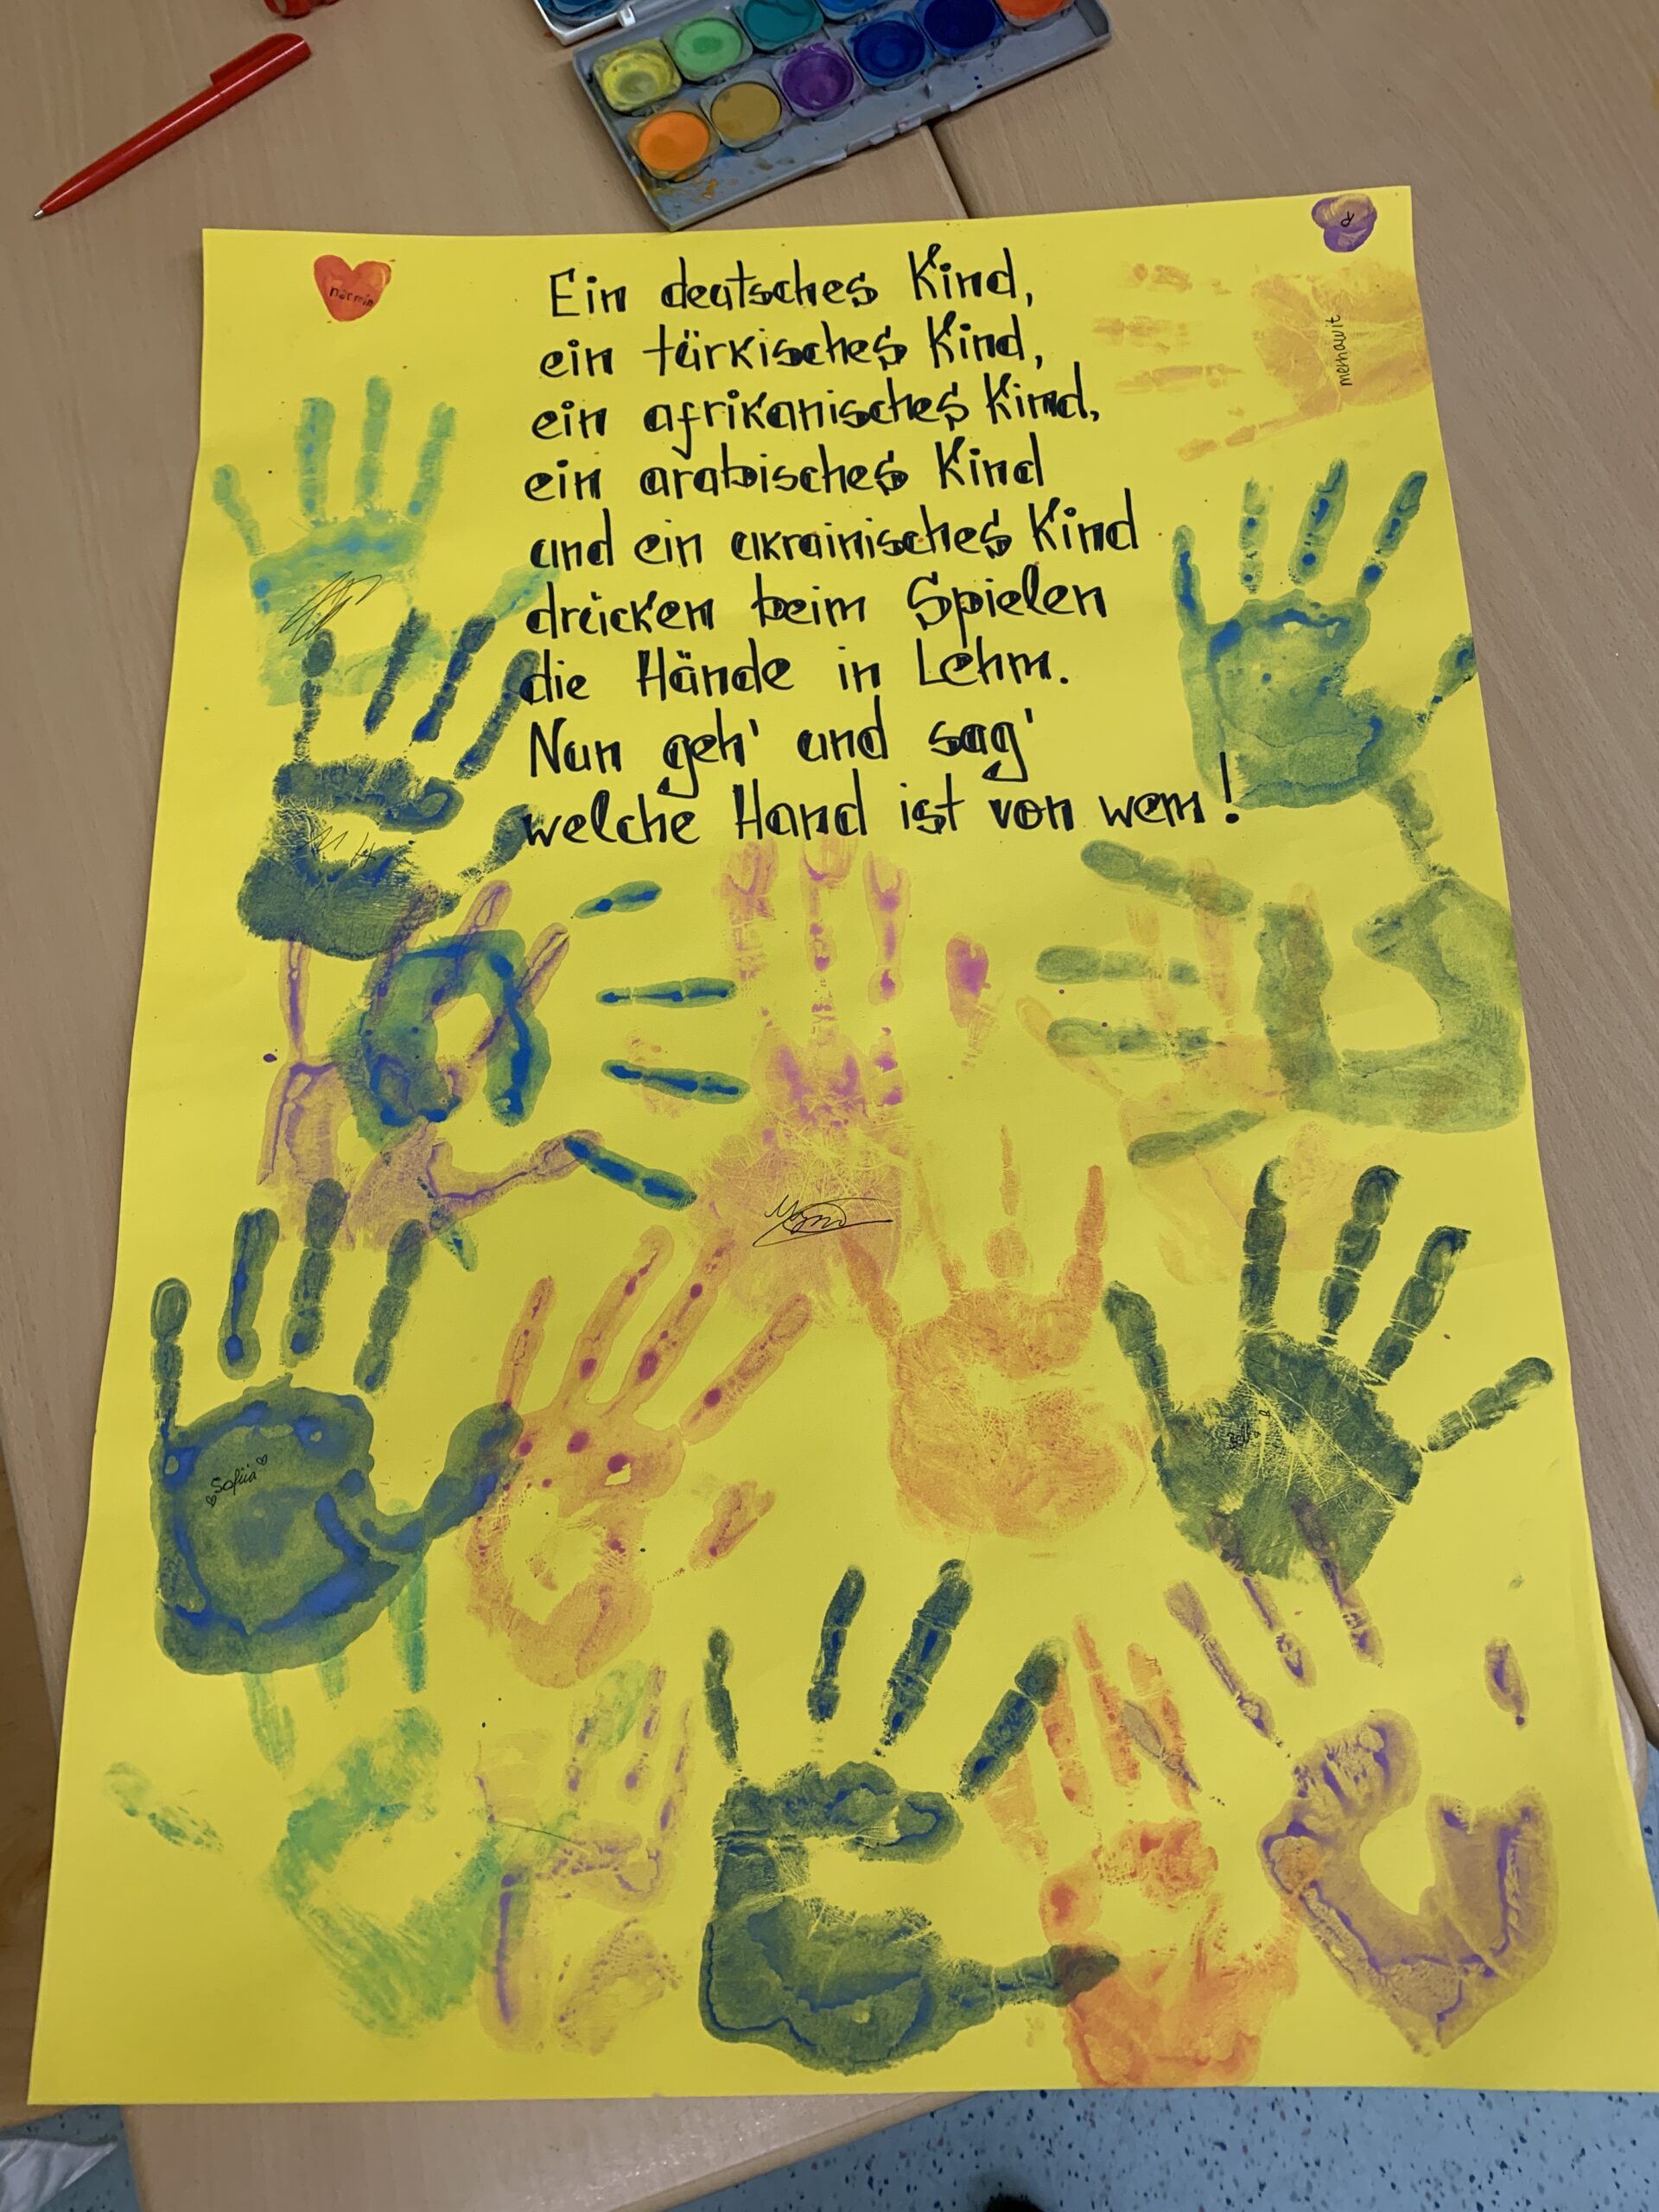 Ein deutsches Kind,
ein türkisches Kind,
ein afrikanisches Kind,
ein arabisches Kind
und ein ukrainisches Kind
drücken beim Spielen
die Hände in Lehm.
Nun geh' und sag'
welche Hand ist von wem!
narmin
merhawit
Sofiia